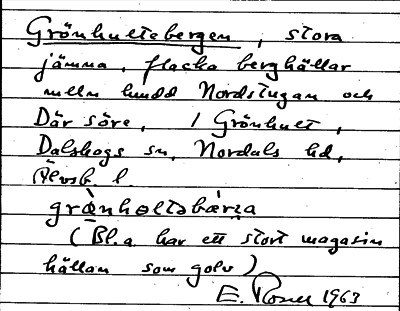 Grönhultebergen, stora
jämna, flacka berghällar
mellan Nordstugan och
Där söre, i Grönhult,
Dalskogs sn, Nordals hd,
Älvsb. l.
grø̀nhøltəbæ̀rɡa
(Bl.a har ett stort magasin
hällan som golv)
E. Rosell 1963